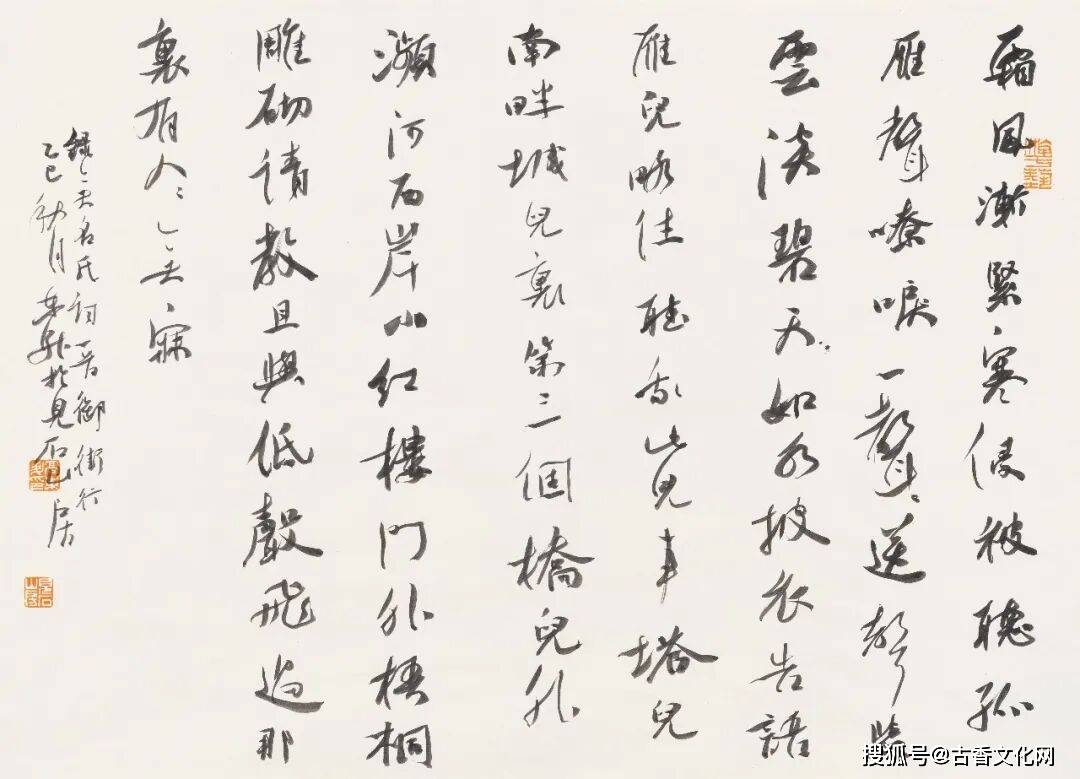 霜風漸緊寒侵被聽孤
雁聲嘹唳一聲〻送聲
雲淡碧天〻如水披衣告語
雁兒略住聽我些兒事塔兒
南畔城兒裏第三個橋兒外
瀕河西岸小紅樓門外梧桐
雕砌請教且與低聲飛過那
裏有人〻無寐
錄無名氏詞一首御街行
乙巳秋月於見石山居
搜狐号@古香文化网